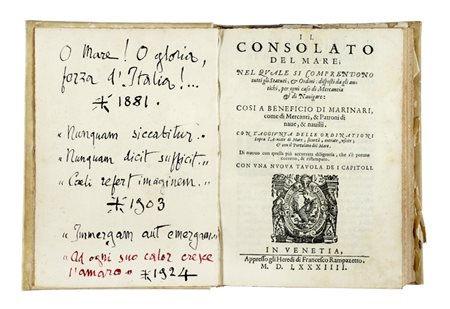 O Mare! O gloria,
forza d'Italia!...
1881.
"Nunquam siccabitur."
"Nunquam dicit sufficit..."
"Coeli refert imaginem..."
1903
"Immergam aut emergam..."
"Ad ogni suo calor cresce
l'amaro" 1924
IL
CONSOLATO
DEL MARE;
NEL QVALE SI COMPRENDONO
tutti gli Statuti, & Ordini: disposti da gli antichi,
per ogni caso di Mercantia
& di Nauigare:
COSI A BENEFICIO DI MARINARI,
come di Mercanti, & Patroni di
naue, & nauilii.
CON L'AGGIVNTA DELLE ORDINATIONI
sopra l'Armate di Mare, sicurtà, entrate, vscite;
& con il Portolano del Mare.
Di nuouo con quella più accurata diligentia, che s'è potuto
corretto, & ristampato.
CON VNA NVOVA TAVOLA DE I CAPITOLI.
IN VENETIA,
Appresso gli Heredi di Francesco Rampazetto.
M. D. LXXXIIII.